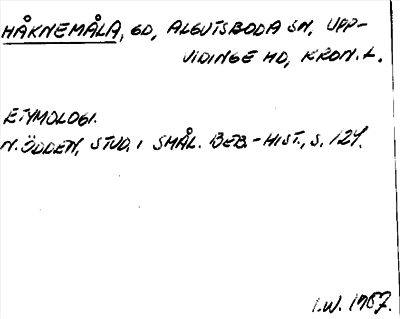 HÅKNEMÅLA, GD, ALGUTSBODA SN, UPP-
VIDINGE HD, KRON. L.
ETYMOLOGI.
N. ÖDEEN, STUD. I SMÅL. BEB.-HIST., S. 124.
I.W. 1987.